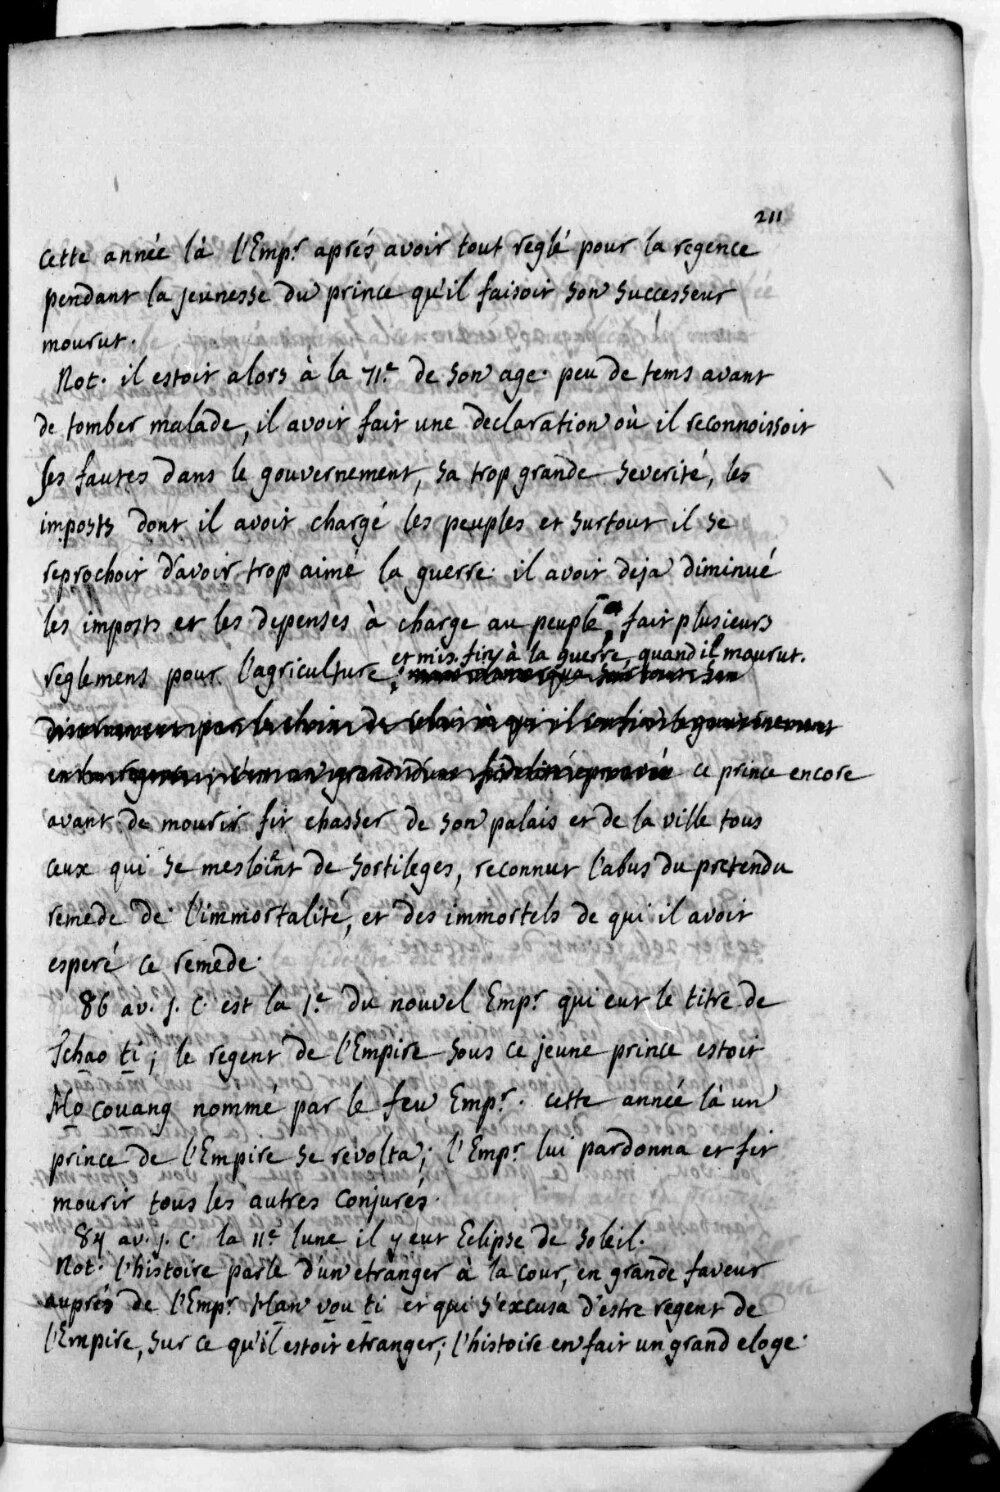 211
cette année là l'Emp.r aprés avoir tout reglé pour la regence
pendant la jeunesse du prince qu'il faisoit son successeur
mourut.
Not. il estoit alors à la 71.e de son age. peu de tems avant
de tomber malade, il avoit fait une declaration où il reconnoissoit
ses fautes dans le gouvernement, sa trop grande severité, les
imposts dont il avoit chargé les peuples et surtout il se
reprochoit d'avoir trop aimé la guerre. il avoit deja diminué
les imposts et les depenses à charge au peuple, fait plusieurs
et mis fin à la guerre, quand il mourut.
reglemens pour l'agriculture,
ce prince encore
avant de mourir fit chasser de son palais et de la ville tous
ceux qui se mesloient de sortileges, reconnut l'abus du pretendu
remede de l'immortalité, et des immortels de qui il avoit
esperé ce remede.
86 av. J. C. est la 1.e du nouvel Emp.r qui eut le titre de
Tchao ti; le regent de l'Empire sous ce jeune prince estoit
Ho couang nommé par le feu Emp.r. cette année là un
prince de l'Empire se revolta; l'Emp.r lui pardonna et fit
mourir tous les autres conjurés.
84 av. J. C. la 11.e lune il y eut Eclipse de soleil.
Not. l'histoire parle d'un etranger à la cour, en grande faveur
auprés de l'Emp.r Han vou ti et qui s'excusa d'estre regent de
l'Empire, sur ce qu'il estoit etranger; l'histoire en fait un grand eloge.